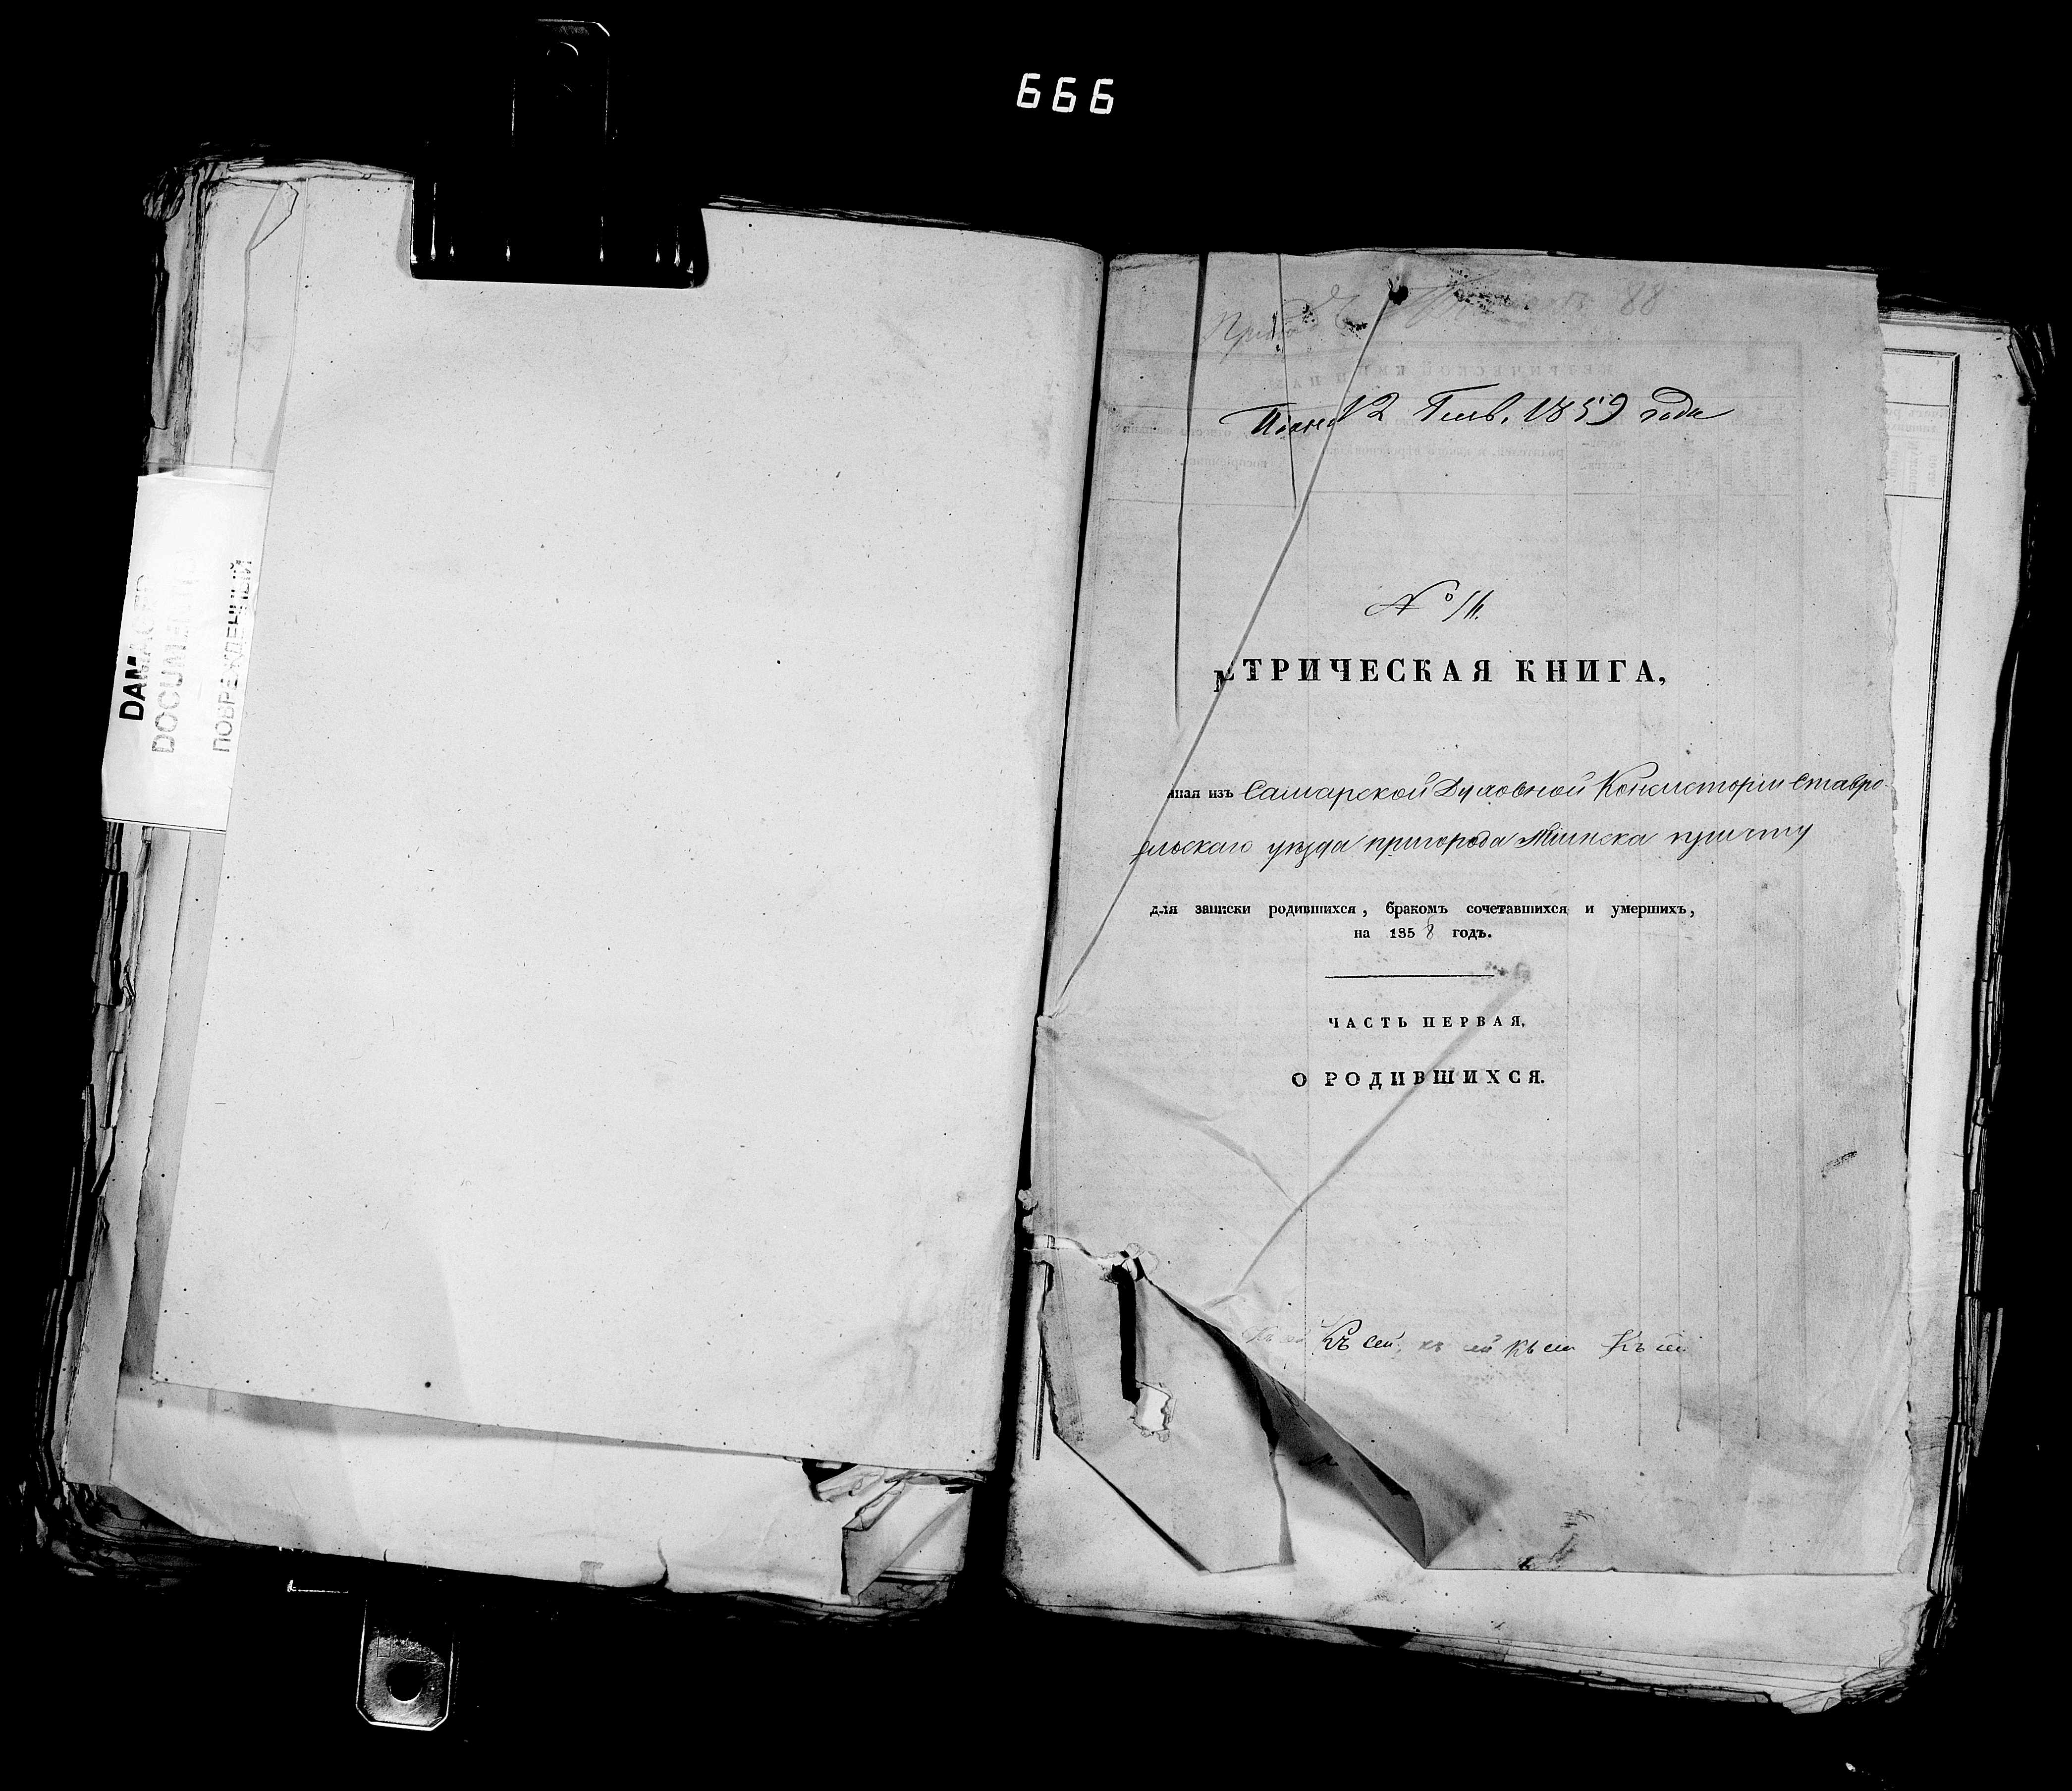 666
DAMAGED
DOCUMENT
ПОВРЕЖДЕННЫЙ
88
12 Генв. 1859 года
№
МЕТРИЧЕСКАЯ КНИГА,
нная изъ Самарской Духовной Консисторіи Ставро-
ольскаго уѣзда пригорода причту
для записки родившихся, бракомъ сочетавшихся и умершихъ,
на 1858 годъ.
ЧАСТЬ ПЕРВАЯ,
О РОДИВШИХСЯ.
Къ сей къ сей къ сей Къ сей